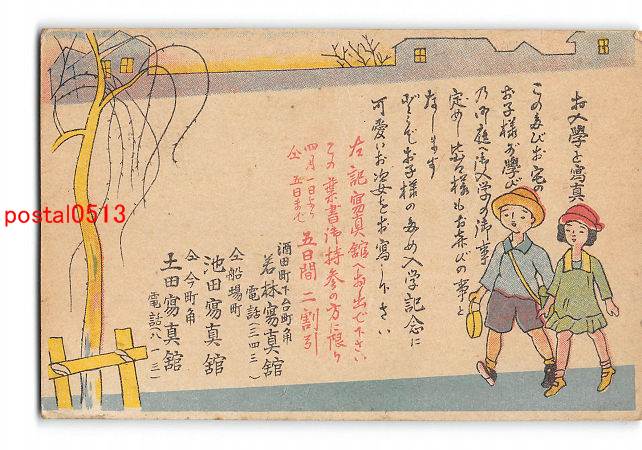 お入學と寫真
この度お宅の
お子様が學び
乃御庭へ御入学の御事
定めし皆々様もお喜びの事と
なします
どうぞお子様の為め入学記念に
可愛いお姿をお寫し下さい
左記寫真舘へお出で下さい
この葉書御持参の方に限り
四月一日より
仝 五日まで
五日間二割引
酒田町下台町角
若林寫真舘
電話(三四三)
仝船場町
池田寫真舘
仝今町角
土田寫真舘
電話八一三)
postal0513